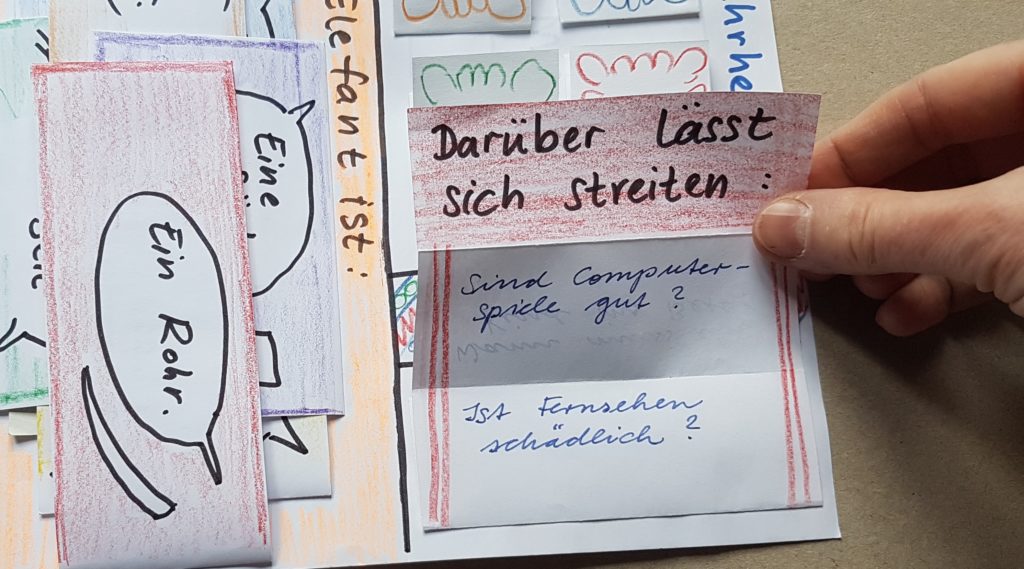 Elefant ist:
Eine
Ein Rohr.
Darüber lässt
sich streiten:
Sind Computer-
spiele gut?
Ist Fernsehen
schädlich?